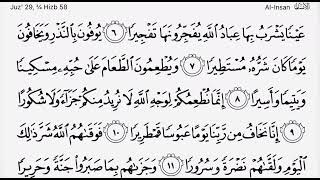 Juz' 29, ¼ Hizb 58 Al-Insan
عَيْنًا يَشْرَبُ بِهَا عِبَادُ اللَّهِ يُفَجِّرُونَهَا تَفْجِيرًا ٦ يُوفُونَ بِالنَّذْرِ وَيَخَافُونَ
يَوْمًا كَانَ شَرُّهُ مُسْتَطِيرًا ٧ وَيُطْعِمُونَ الطَّعَامَ عَلَىٰ حُبِّهِ مِسْكِينًا
وَيَتِيمًا وَأَسِيرًا ٨ إِنَّمَا نُطْعِمُكُمْ لِوَجْهِ اللَّهِ لَا نُرِيدُ مِنْكُمْ جَزَاءً وَلَا شُكُورًا
٩ إِنَّا نَخَافُ مِنْ رَبِّنَا يَوْمًا عَبُوسًا قَمْطَرِيرًا ١٠ فَوَقَىٰهُمُ اللَّهُ شَرَّ ذَٰلِكَ
الْيَوْمِ وَلَقَّىٰهُمْ نَضْرَةً وَسُرُورًا ١١ وَجَزَىٰهُمْ بِمَا صَبَرُوا جَنَّةً وَحَرِيرًا